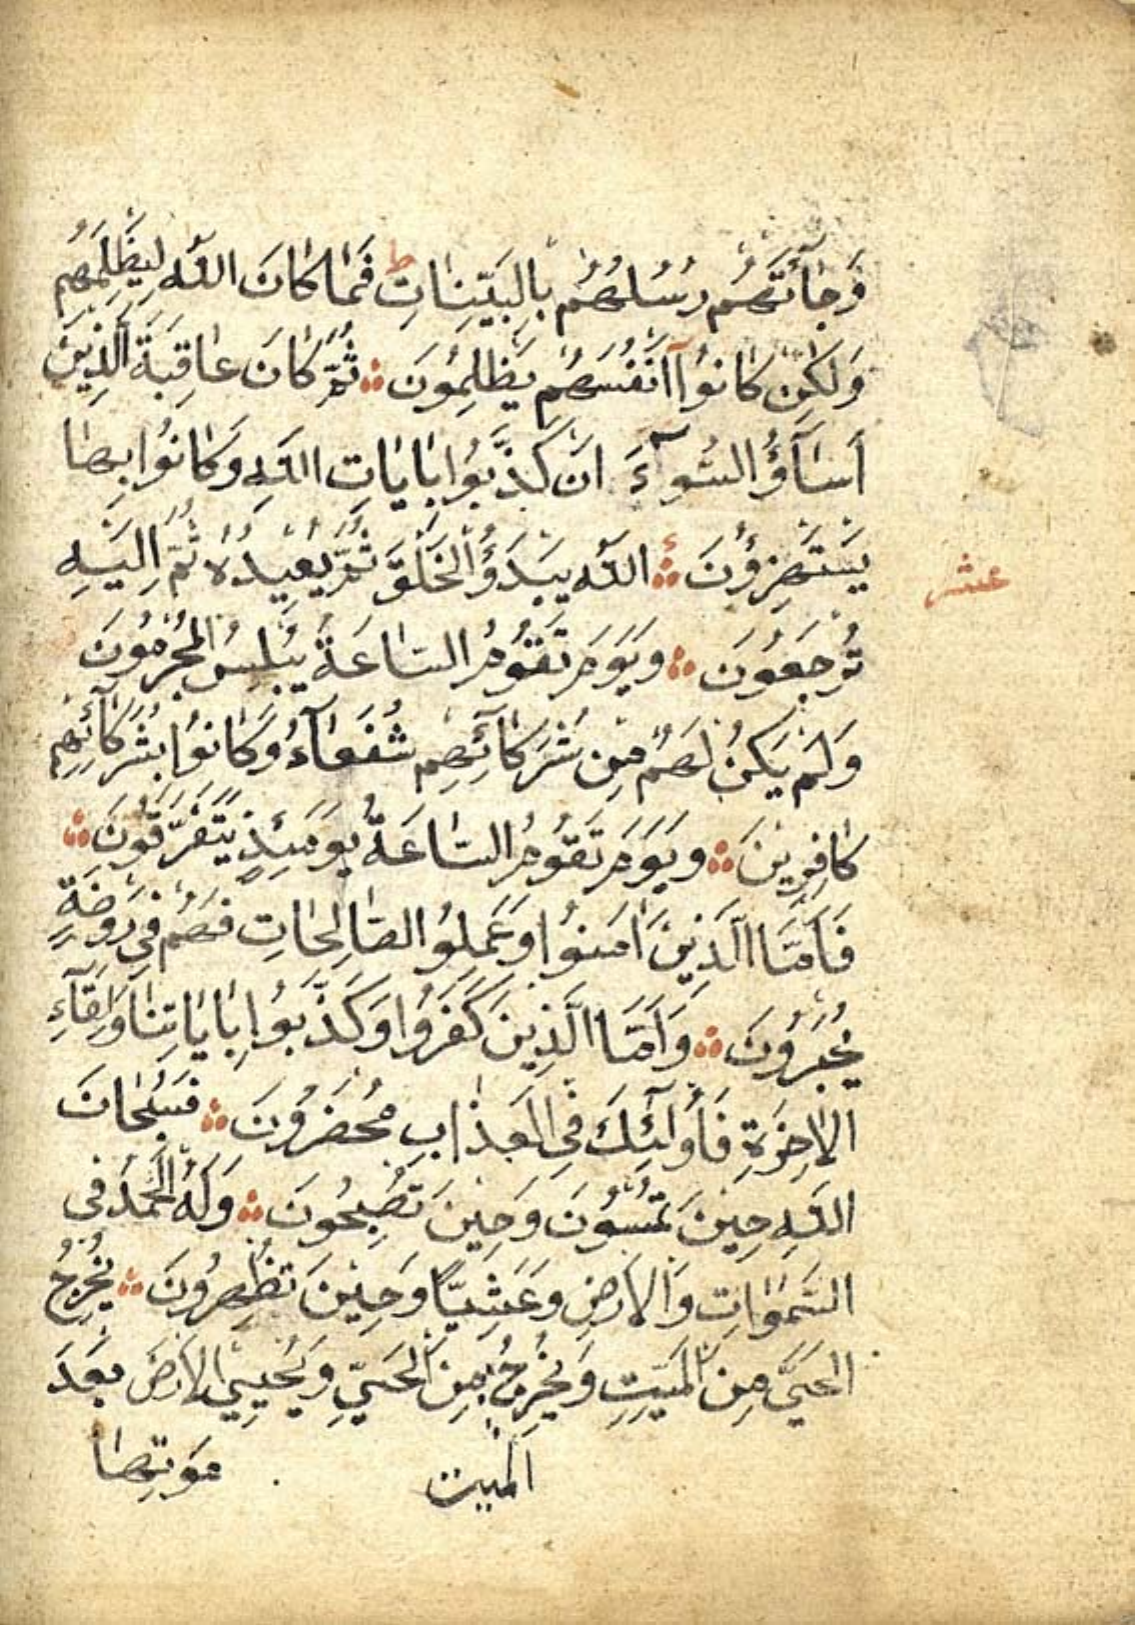 وَجَآئَتْهُمْ رُسُلُهُمْ بِالْبَيِّنَاتِ ط فَمَا كَانَ اللّٰهُ لِيَظْلِمَهُمْ
وَلٰكِنْ كَانُوٓا اَنْفُسَهُمْ يَظْلِمُونَ ثُمَّ كَانَ عَاقِبَةَ الَّذِينَ
اَسَآؤُ السُّوآءَ اَنْ كَذَّبُوا بِاٰيَاتِ اللّٰهِ وَكَانُوا بِهَا
يَسْتَهْزِؤُنَ اَللّٰهُ يَبْدَؤُ الْخَلْقَ ثُمَّ يُعِيدُهُ ثُمَّ اِلَيْهِ
عشر
تُرْجَعُونَ وَيَوْمَ تَقُومُ السَّاعَةُ يُبْلِسُ الْمُجْرِمُونَ
وَلَمْ يَكُنْ لَهُمْ مِنْ شُرَكَآئِهِمْ شُفَعَآءُ وَكَانُوا بِشُرَكَآئِهِمْ
كَافِرِينَ وَيَوْمَ تَقُومُ السَّاعَةُ يَوْمَئِذٍ يَتَفَرَّقُونَ
فَاَمَّا الَّذِينَ اٰمَنُوا وَعَمِلُوا الصَّالِحَاتِ فَهُمْ فِي رَوْضَةٍ
يُحْبَرُونَ وَاَمَّا الَّذِينَ كَفَرُوا وَكَذَّبُوا بِاٰيَاتِنَا وَلِقَآءِ
الْاٰخِرَةِ فَاُولٰٓئِكَ فِي الْعَذَابِ مُحْضَرُونَ فَسُبْحَانَ
اللّٰهِ حِينَ تُمْسُونَ وَحِينَ تُصْبِحُونَ وَلَهُ الْحَمْدُ فِي
السَّمٰوَاتِ وَالْاَرْضِ وَعَشِيًّا وَحِينَ تُظْهِرُونَ يُخْرِجُ
الْحَيَّ مِنَ الْمَيِّتِ وَيُخْرِجُ مِنَ الْحَيِّ وَيُحْيِي الْاَرْضَ بَعْدَ
الْمَيِّتَ مَوْتِهَا